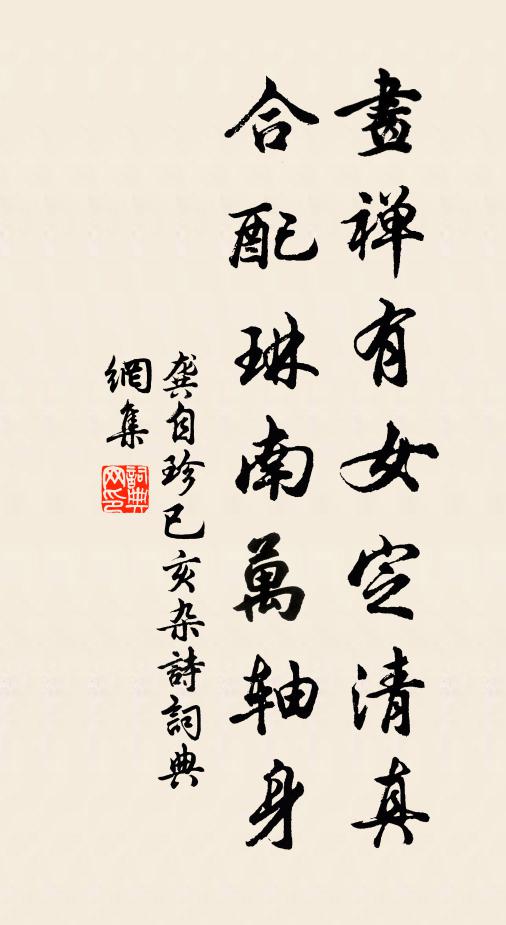 畫禅有女定清真
合配琳南萬軸身
龚自珍己亥杂詩詞典
網集
詞典
网印